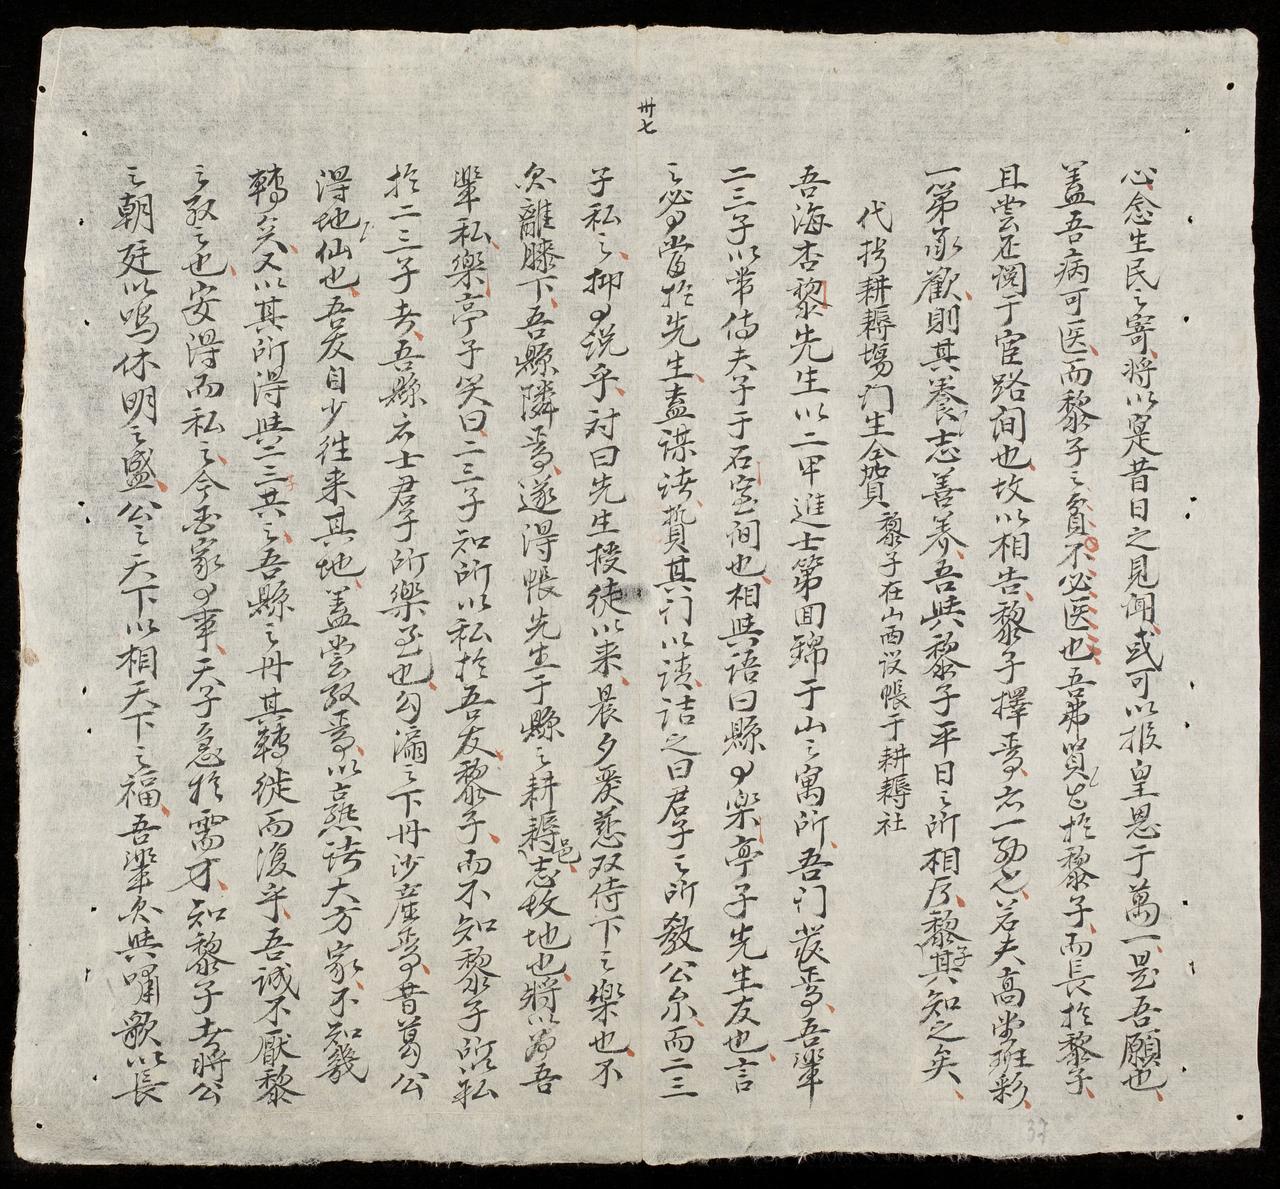 卅七
心念生民之寄將以寔昔日之見聞或可以报皇恩于萬一是吾願也
蓋吾病可医而黎子之貧不必医也吾弟賢也於黎子而長於黎子
且尝在阅于宦路间也故以相告黎子擇焉右一勁也若夫高堂班彩
一第承歡則其養志善养吾與黎子平日之所相厚黎子其知之矣
代拧耕耨塲门生仝賀 黎子在山西设帳于耕耨社
吾海杏黎先生以二甲進士第回錦于山之寓所吾门发焉吾輩
二三子以常侍夫子于石室间也相與语曰縣の樂亭子先生友也言
之必の當於先生盍谋诸贊其门以请诘之曰君子之所教公尔而二三
子私之抑の说乎对曰先生授徒以来晨夕爰慈双侍下之樂也不
久離膝下吾縣隣焉遂得帳先生于縣之耕耨邑志故地也將以为吾
輩私樂亭子笑曰二三子知所以私於吾友黎子而不知黎子所以私
於二三子者吾縣名士君子所樂至也勾漏之下丹沙產焉昔葛公
得地仙也吾友自少往来其地蓋尝致焉以熹诸大方家不知幾
轉矣又以其所得與二三子共之吾縣之丹其轉徙而復乎吾诚不厭黎
之教之也安得而私之今国家の事天子急於需才知黎子者將公
之朝廷以鸣休明之盛公之天下以相天下之福吾輩久與嘯歌以長
37